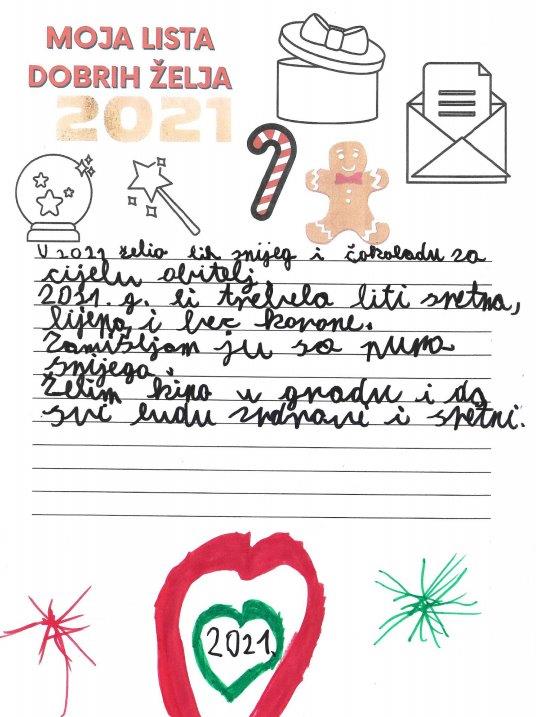 MOJA LISTA
DOBRIH ŽELJA
2021
U 2021 želio bih snijeg i čokoladu za
cijelu obitelj
2021. g. bi trebala biti sretna,
lijepa i bez korone.
Zamišljam ju sa puno
snijega.
Želim kino u gradu i da
svi budu zdravi i sretni.
2021.